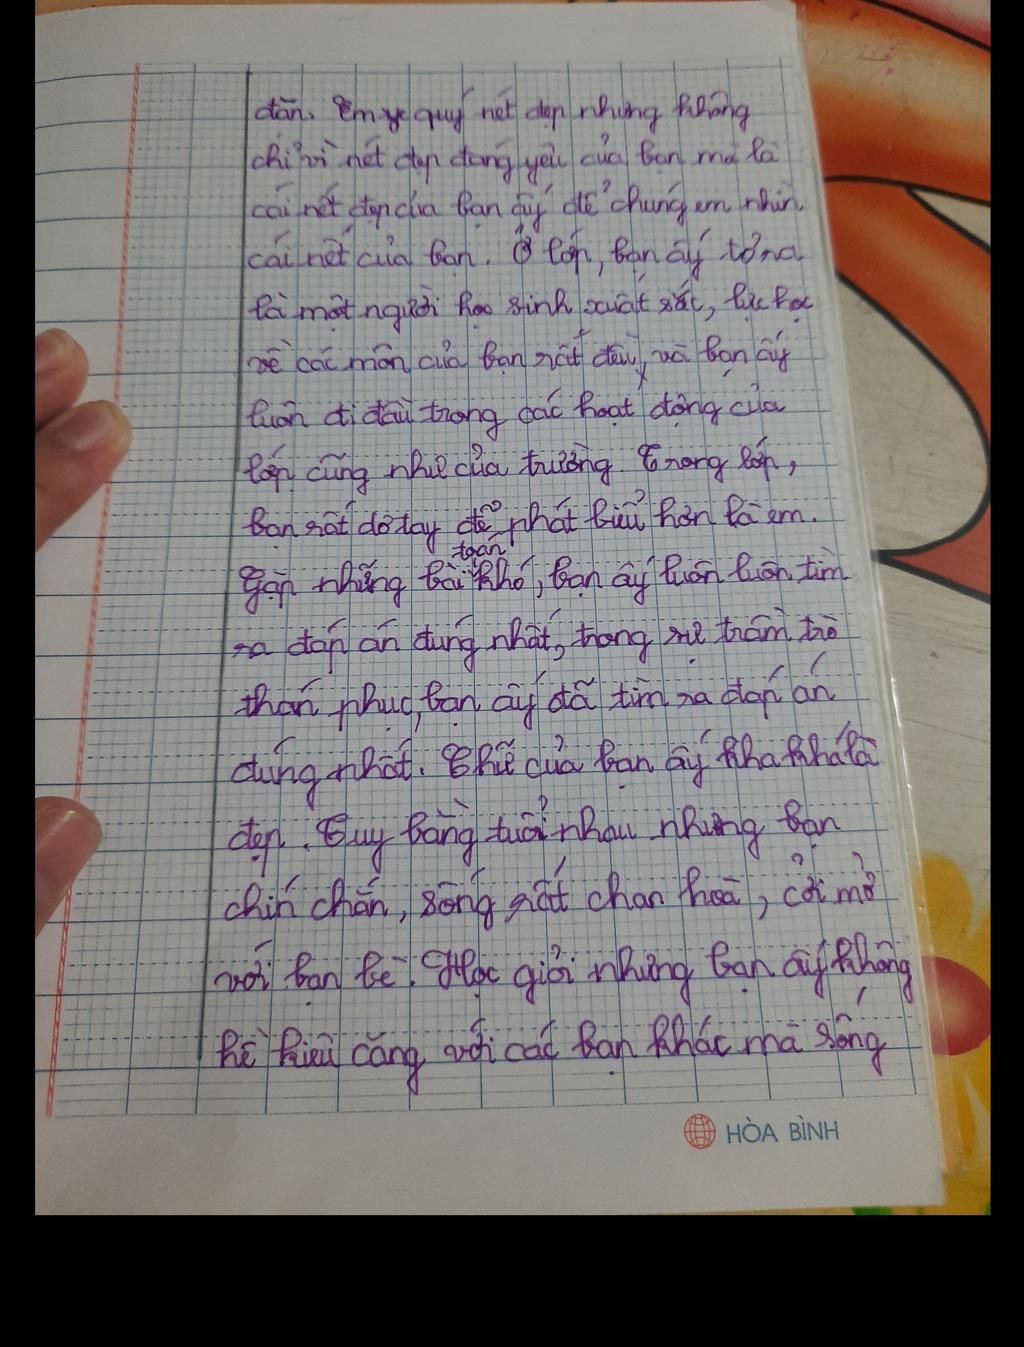 dàn. Em quý nét đẹp nhưng không
chỉ vì nét đẹp đáng yêu của bạn mà là
cái nét đẹp của bạn ấy để chúng em nhìn
cái nết của bạn. Ở lớp, bạn ấy tỏ ra
là một người học sinh xuất sắc, lực học
về các môn của bạn rất đều, và bạn ấy
luôn đi đầu trong các hoạt động của
lớp cũng như của trường. Trong lớp,
bạn rất dơ tay để phát biểu hơn là em.
Gặp những bài toán khó, bạn ấy luôn luôn tìm
ra đáp án đúng nhất, trong sự trầm trồ
thán phục, bạn ấy đã tìm ra đáp án
đúng nhất. Chữ của bạn ấy kha khá là
đẹp. Tuy bằng tuổi nhau nhưng bạn
chín chắn, sống rất chan hoà, cởi mở
với bạn bè. Học giỏi nhưng bạn ấy không
hề kiêu căng với các bạn khác mà sống
HÒA BÌNH